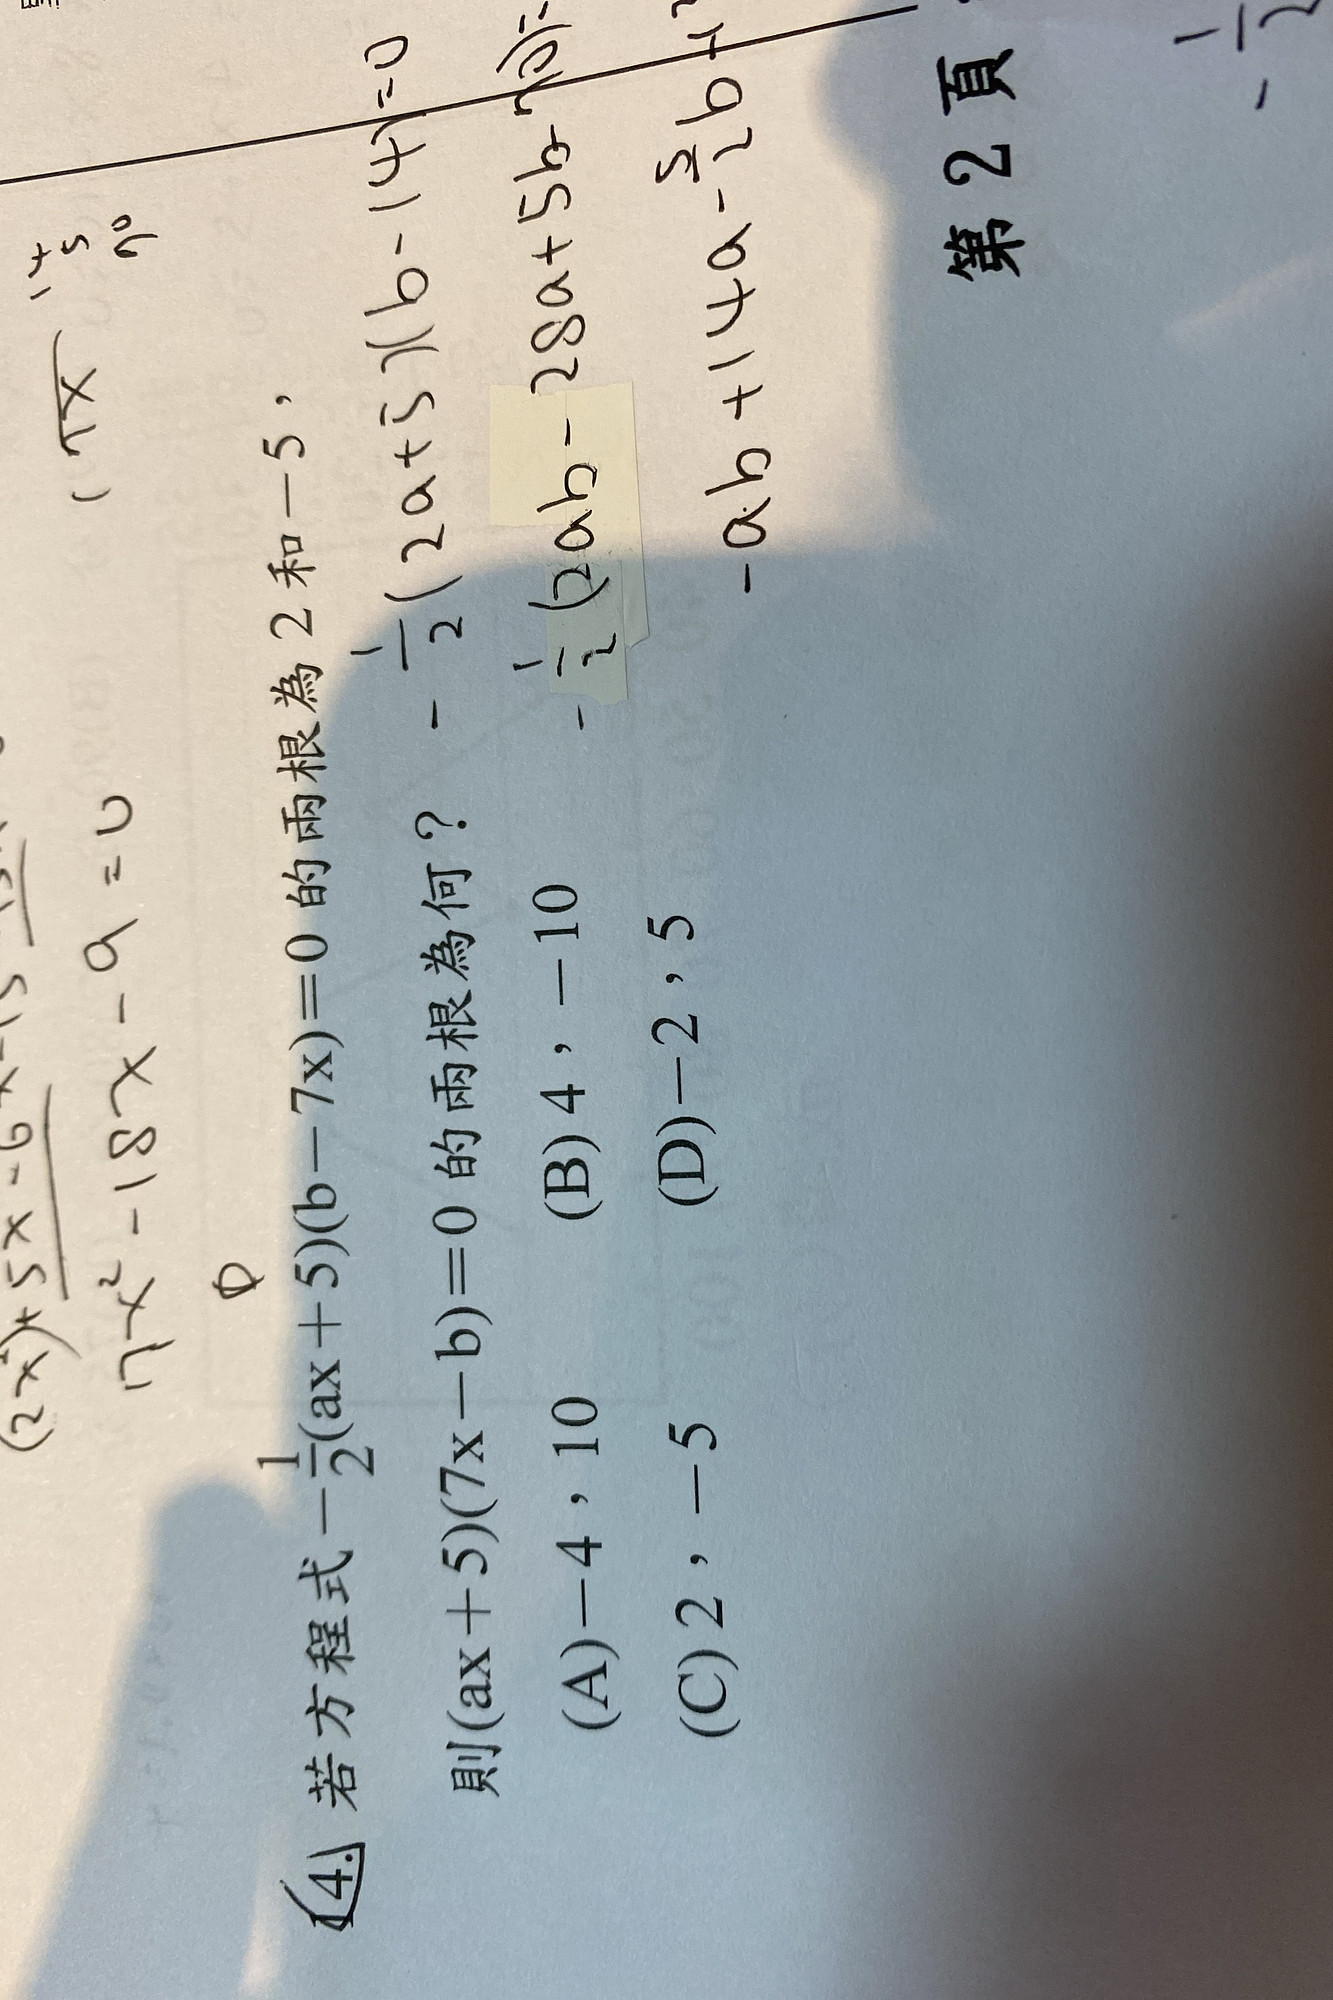 7x² - 18x - 9 = 0
14. 若方程式 -1/2(ax+5)(b-7x)=0 的兩根為 2 和 -5，
則(ax+5)(7x-b)=0 的兩根為何？
(A)-4，10 (B)4，-10
(C)2，-5 (D)-2，5
-1/2(2a+5)(b-14)=0
-1/2(2ab-28a+5b-70)=
-ab+14a-5/2b+
第 2 頁